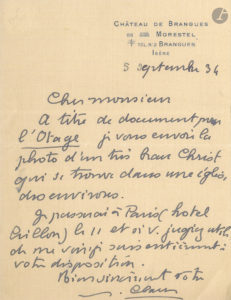 CHÂTEAU DE BRANGUES
MORESTEL
TEL. N°2 BRANGUES
ISÈRE
5 septembre 34
Cher monsieur
A titre de document pour
l'Otage je vous envoie la
photo d'un très beau Christ
qui se trouve dans une église
des environs.
Je passerai à Paris (hotel
Crillon) le 11 et si v. jugez utile
de me voir je suis entièrement à
votre disposition.
Bien sincèrement votre